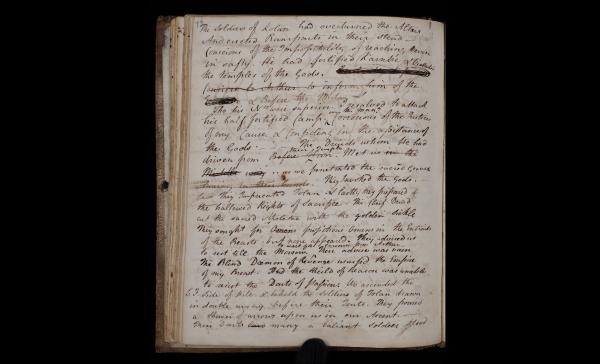 The Soldiers of Tolan had overturned the Altars
And erected Ramparts in their stead —
Conscious of the Impossibility of reaching
in safty. He had fortified Karnbre &
the temples of the Gods.
to inform him of the
& Before the
Tho his Nos were superior I resolved to attack
his half fortified Camp. Conscious of the Justice
of my Cause & Confident in the assistance of
the Gods — The Druids whom he had
driven from their Temples Met us in the
as we penetrated the sacred Grove
They Invoked the Gods.
they Imprecated Tolan & lastly they prepared
the hallowed Rights of Sacrifice. The Chief Druid
cut the sacred Misletoe with the golden Sickle
They sought for propitious Omens in the Entrails
of the Beasts but none appeared. They advised us
to rest till the Morrow. Their advice was vain
The Blind Dæmon of Revenge usurped the Empire
of my Breast. And the shield of Reason was unable
to resist the Darts of Passion We ascended the
Side of the & beheld the Soldiers of Tolan drawn
in double array before their Tents. They poured
a Shower of arrows upon us in our Ascent.
Their Darts many a valiant Soldier